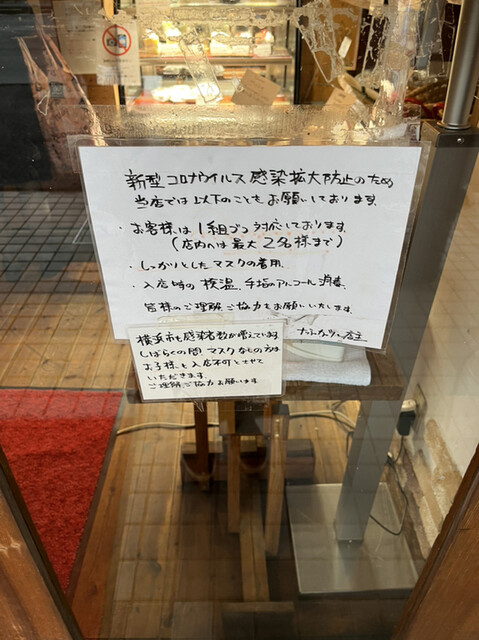 新型コロナウイルス感染拡大防止のため
当店では以下のことをお願いしております。
・お客様は1組づつ対応しております。
(店内へは最大2名様まで)
・しっかりとしたマスクの着用。
・入店時の検温、手指のアルコール消毒。
皆様のご理解ご協力をお願いいたします。
店主
横浜市も感染者数が増えています。
しばらくの間マスクなしの方は
お子様も入店不可とさせて
いただきます。
ご理解、ご協力お願います。